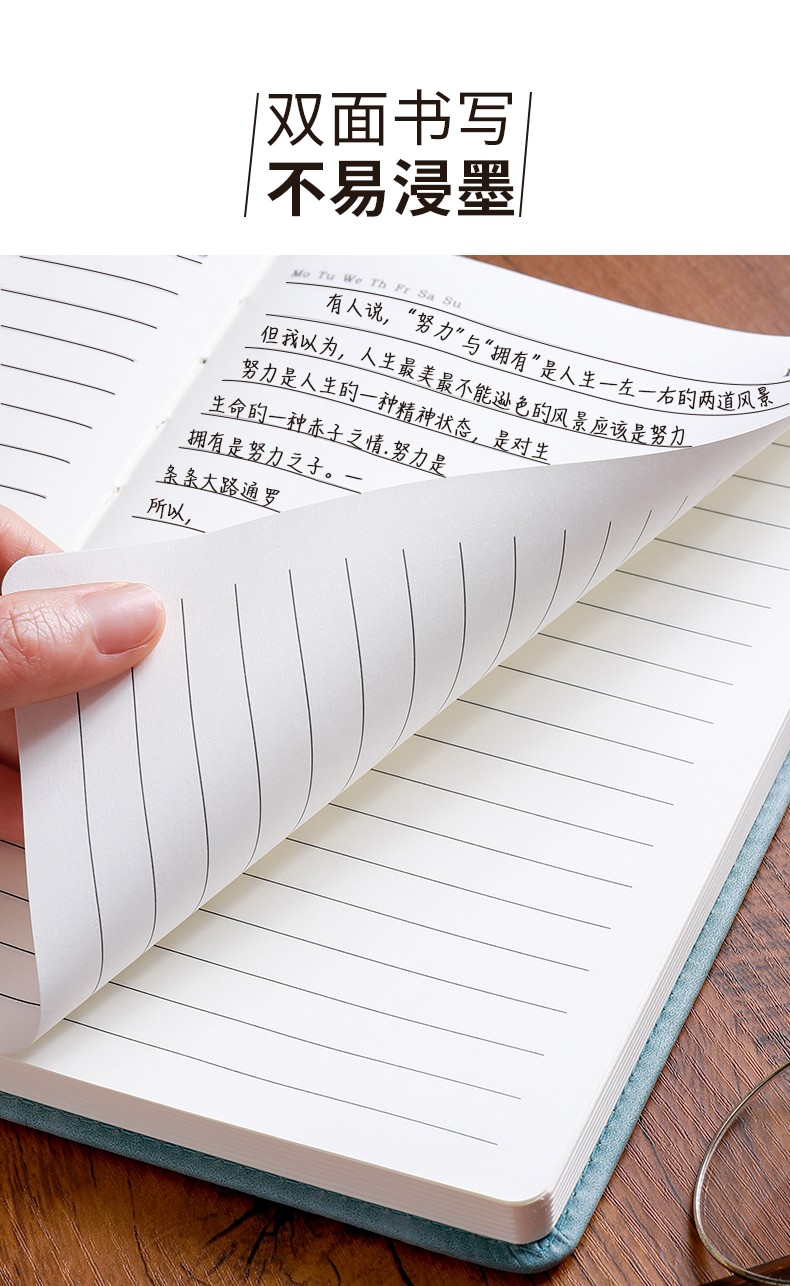 双面书写
不易浸墨
Mo Tu We Th Fr Sa Su
有人说，“努力”与“拥有”是人生一左一右的两道风景
但我以为，人生最美最不能逊色的风景应该是努力
努力是人生的一种精神状态，是对生
生命的一种赤子之情.努力是
拥有是努力之子。一
条条大路通罗
所以，